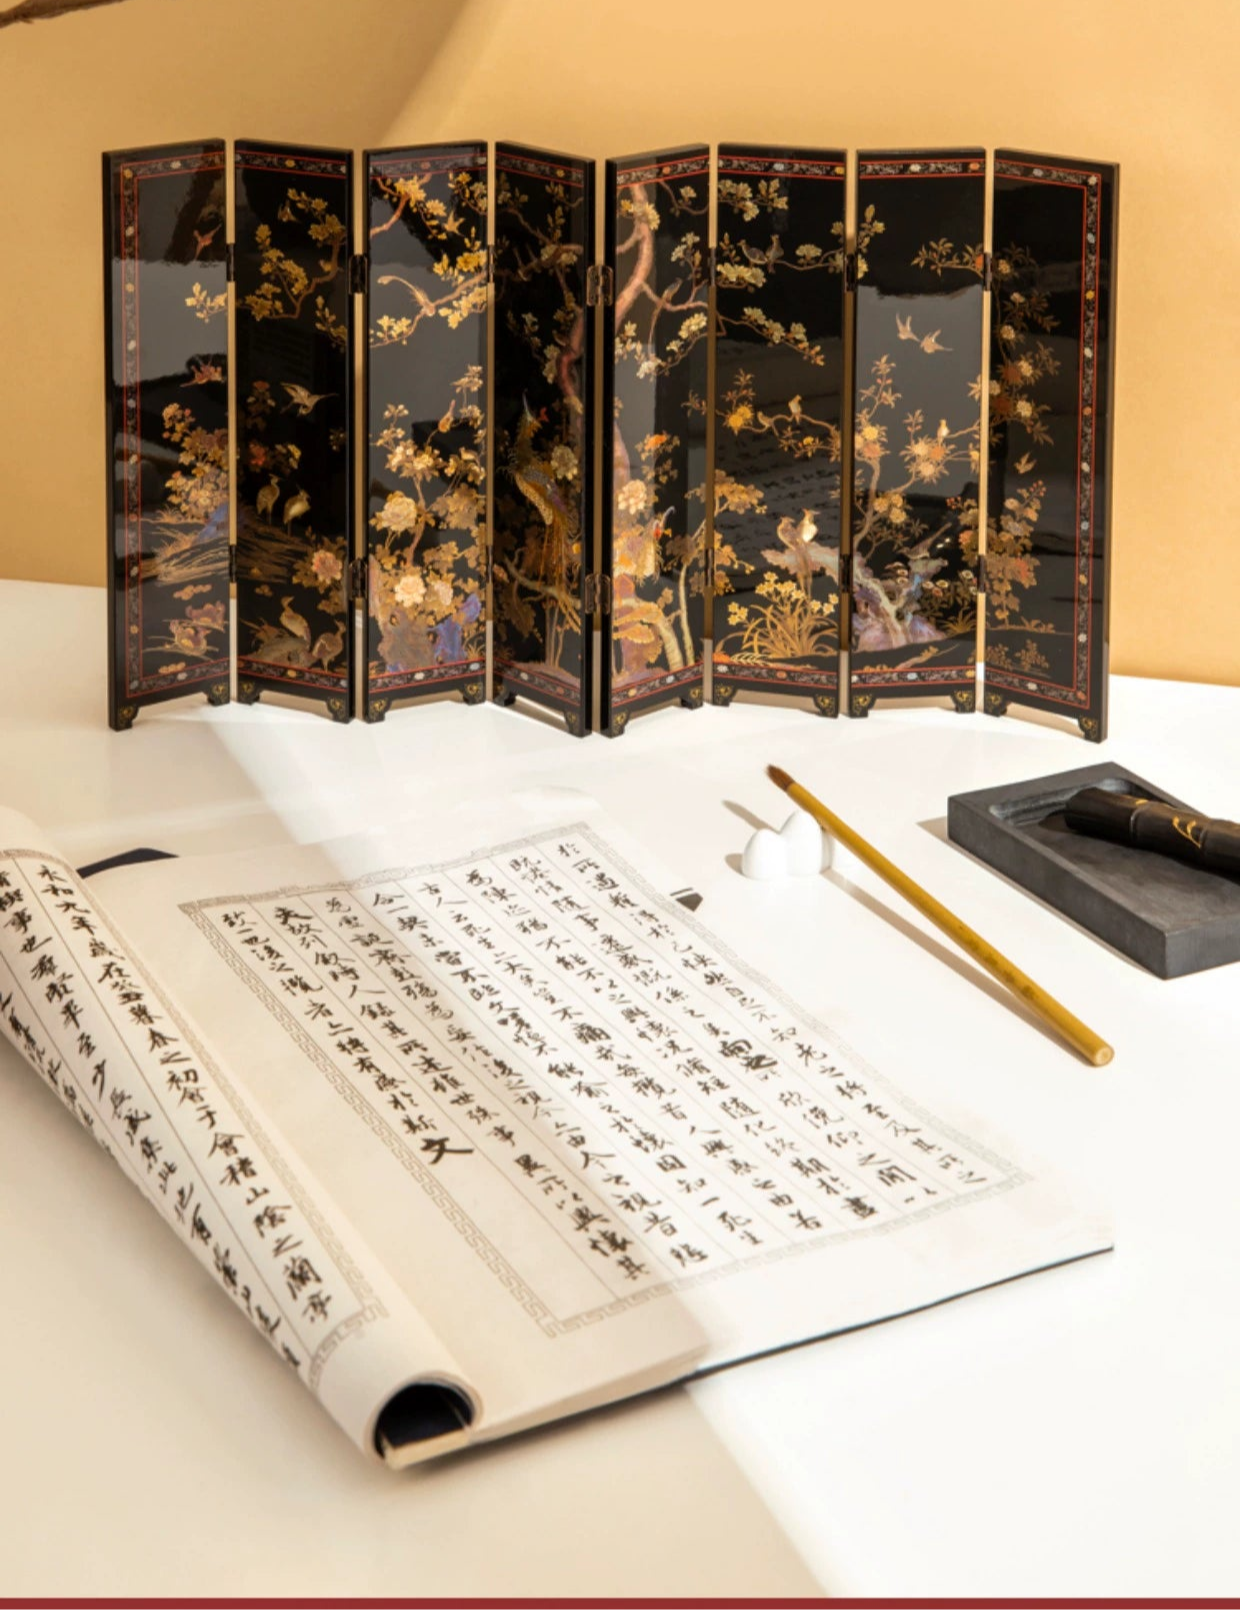 永和九年歲在癸丑暮春之初會于會稽山陰之蘭亭
禊事也羣賢畢至少長咸集此地有崇山峻
於所遇蹔得於己怏然自足不知老之將至及其所之
既惓情隨事遷感慨係之矣向之所欣俛仰之閒以
為陳迹猶不能不以之興懷況脩短隨化終期於盡
古人云死生亦大矣豈不痛哉每攬昔人興感之由若
合一契未嘗不臨文嗟悼不能喻之於懷固知一死生
為虛誕齊彭殤為妄作後之視今亦由今之視昔悲
夫故列敘時人錄其所述雖世殊事異所以興懷其
致一也後之攬者亦將有感於斯文